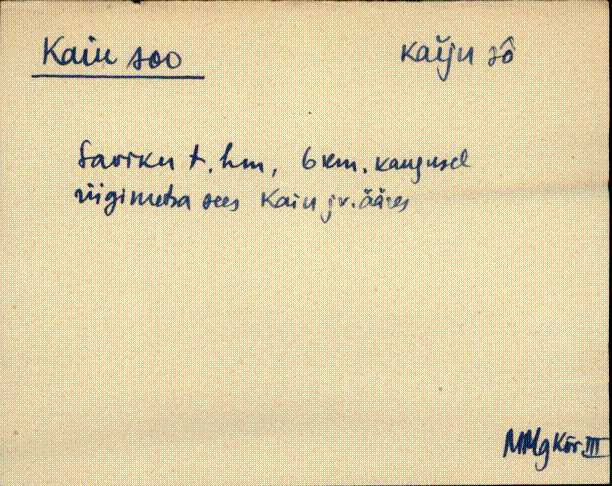 Kaiu soo
kaĭju sô
Saviku t. hm, 6 km. kaugusel
riigimetsa sees Kaiu jv. ääres
MMg Kõr. III